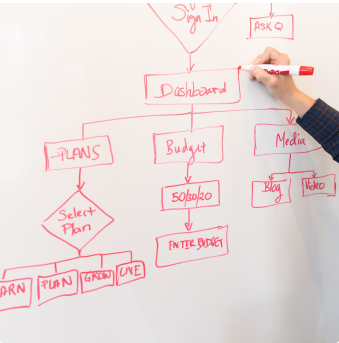 Sign In
ASK Q
Dashboard
PLANS
Budget
Media
Select
Plan
50/30/20
Blog
Video
ENTER BUDGET
ARN
PLAN
GROW
LIVE